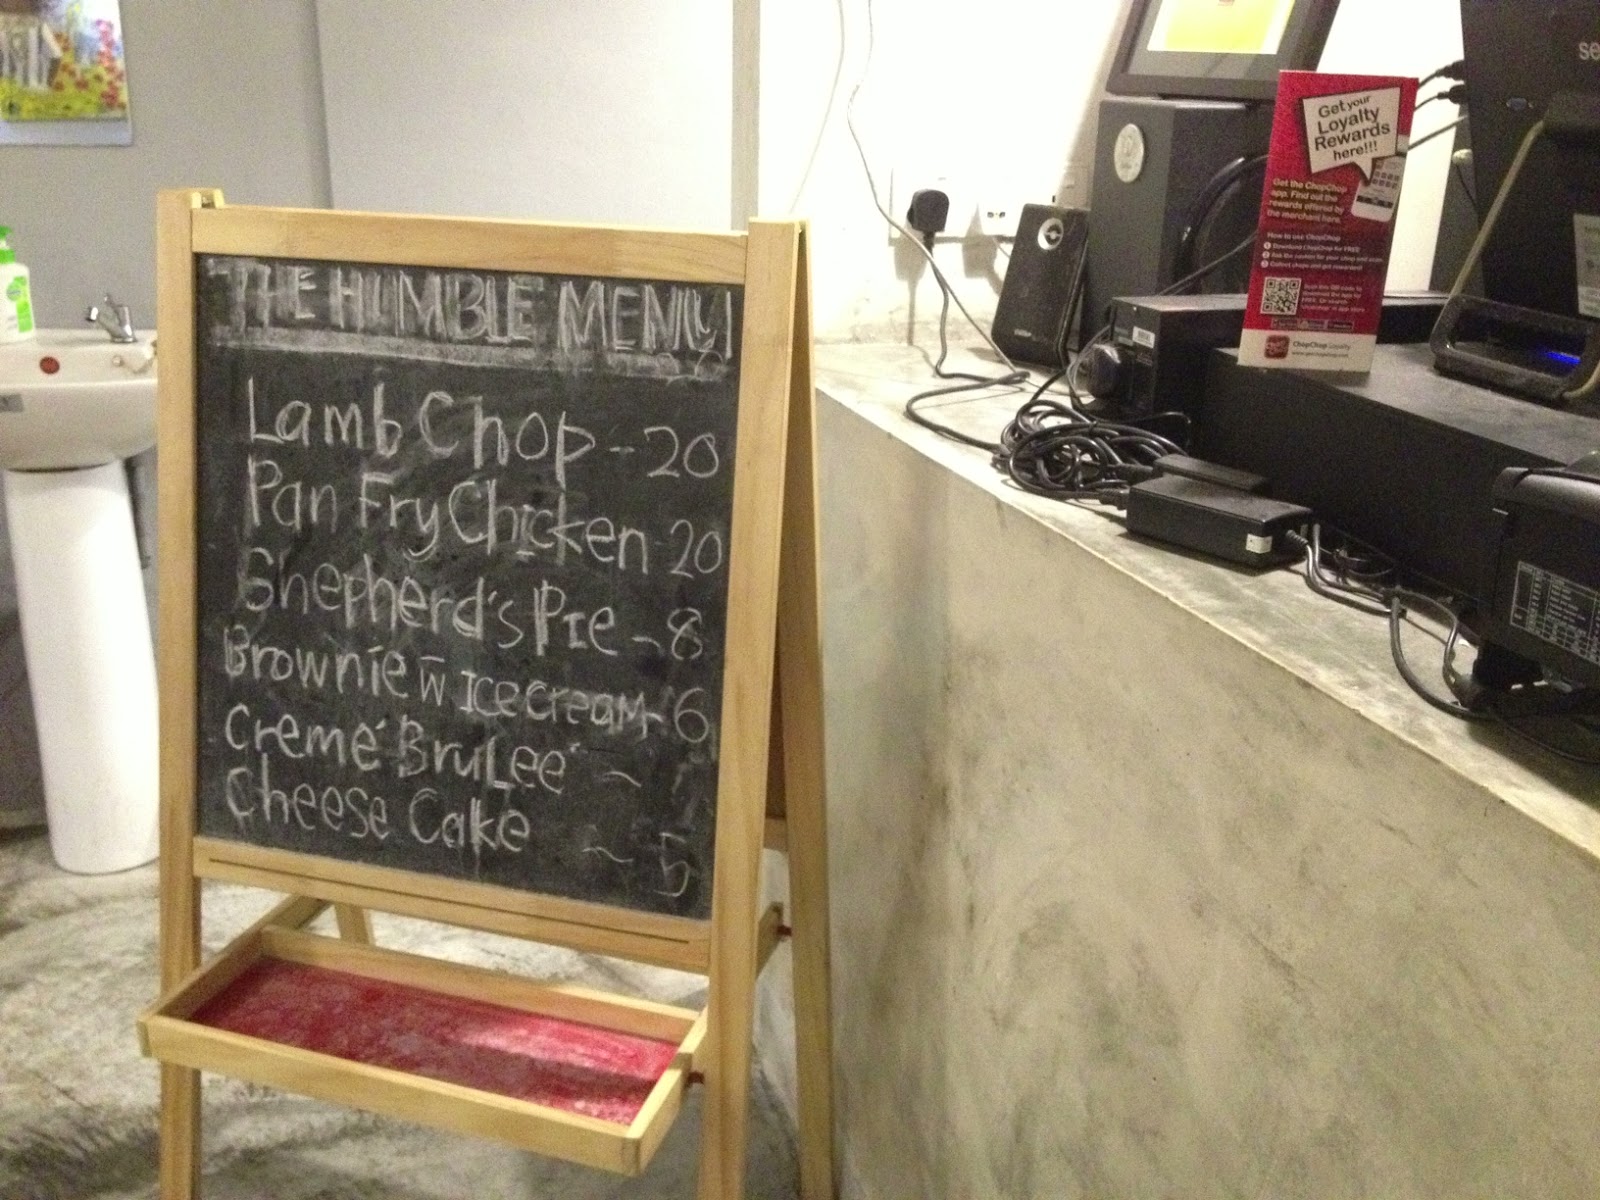 THE HUMBLE MENU
Lamb Chop - 20
Pan Fry Chicken - 20
Shepherd's Pie - 8
Brownie w̄ Ice cream - 6
Cremé Bruleé ~
Cheese Cake ~ 5
Get your
Loyalty
Rewards
here!!!
Get the ChopChop
app. Find out the
rewards offered by
the merchant here.
How to use ChopChop
1 Download ChopChop for FREE
2 Ask the cashier for your chop and scan
3 Collect chops and get rewards!
Scan this QR code to
download the app for
ChopChop Loyalty
se